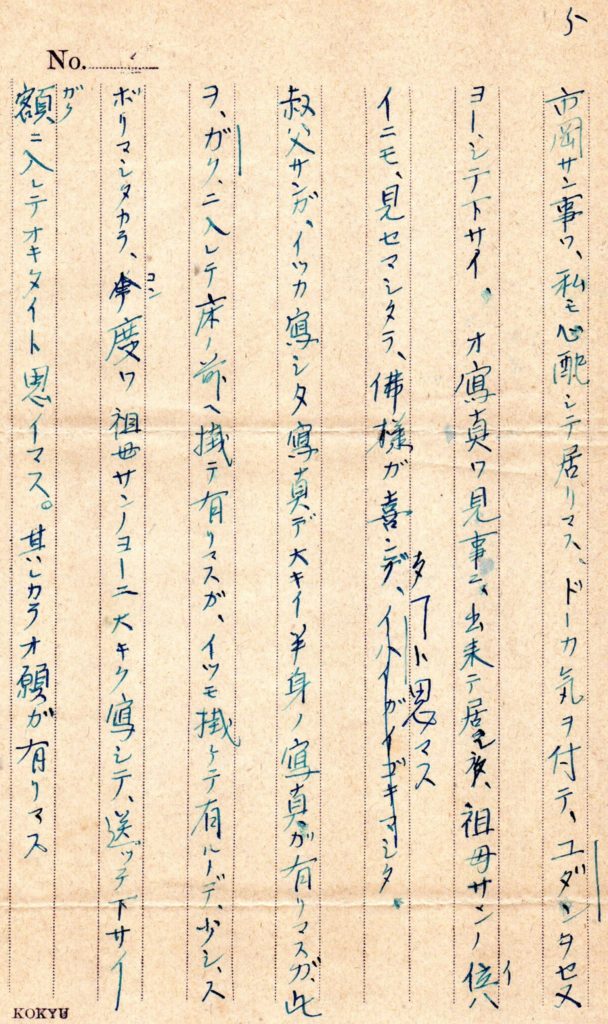 5
No.
市岡サン事ワ、私モ心配シテ居リマス、ドーカ気ヲ付テ、ユダンタセヌ
ヨーシテ下サイ。オ寫真ワ見事ニ、出来テ居 祖母サンノ位イ八
イニモ、見セマシタラ、佛様ガ喜ンデ、イハイガイゴキマシタ
タート思マス
叔父サンガ、イツカ寫シタ寫真デ大キイ半身ノ寫真ガ有リマスガ、此
ヲ、ガク、ニ入レテ床ノ前ヘ掛テ有リマスガ、イツモ掛ケテ有ルノデ、少シ、ス
ボリマシタカラ、今コン度ワ祖母サンノヨーニ大キク寫シテ、送ッテ下サイ
額ガクニ入レテオキタイト思イマス。其レカラオ願ガ有リマス
KOKYU